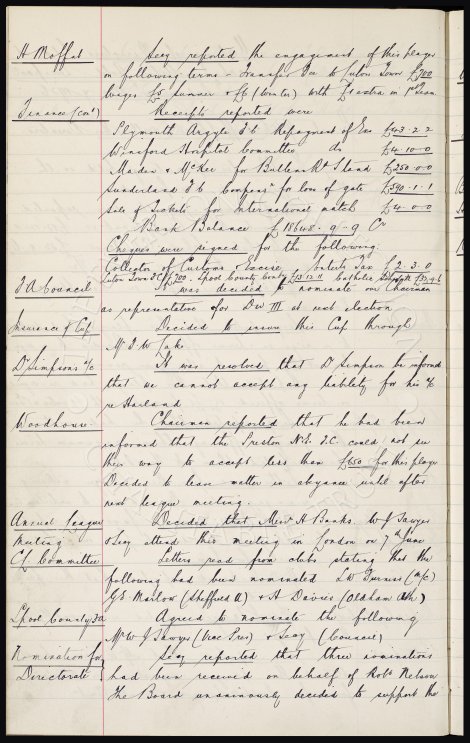 H Moffat
Secy reported the engagement of this player
on following terms - Transfer Fee to Luton Town £700
Wages £5 summer & £6 (Winter) with £1 extra in 1st Team.
Finance (con)
Receipts reported were
Plymouth Argyle F.C. Repayment of Exs £43-2-2
Winsford Hospital Committee do £4-10-0
Maden & McKee for Bullens Rd Stand £250-0-0
Sunderland F.C. Compensn for loss of gate £590-1-1
Sale of Tickets for International match £4-0-0
Bank Balance £18648-9-9 Cr
Cheques were signed for the following:
Collector of Customs & Excise, Enterts Tax £ 2-3-0
Luton Town F.C. £700. Lpool County Comb Catholic
F A Council
It was decided to nominate our Chairman
as representative for Div III at next election
Insurance of Cup
Decided to insure this Cup through
Mr J W
Dr Simpsons a/c
It was resolved that Dr Simpson be informed
that we cannot accept any liability for his a/c
re Harland
Woodhouse
Chairman reported that he had been
informed that the Preston N.E. F.C. could not see
their way to accept less than £650 for this player
Decided to leave matter in abeyance until after
next league meeting.
Annual League
Meeting
Decided that Messrs H Banks. W J Sawyer
& Secy attend this meeting in London on 7th June
C.L. Committee
Letters read from clubs stating that the
following had been nominated L W Furniss (M/c)
G E Marlow (Sheffield U) & A Davies (Oldham Ath)
Lpool County F.A.
Agreed to nominate the following
Mr W J Sawyer (Vice Pres) & Secy (Council)
Nomination for
Directorate
Secy reported that three nominations
had been received on behalf of Robt Nelson
The Board unanimously decided to support the